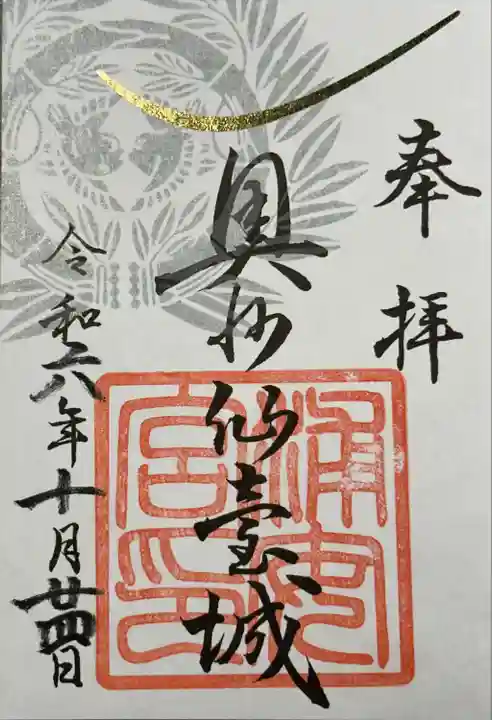 奉拝
奥州仙臺城
浦安
宮印
令和六年十月廿四日